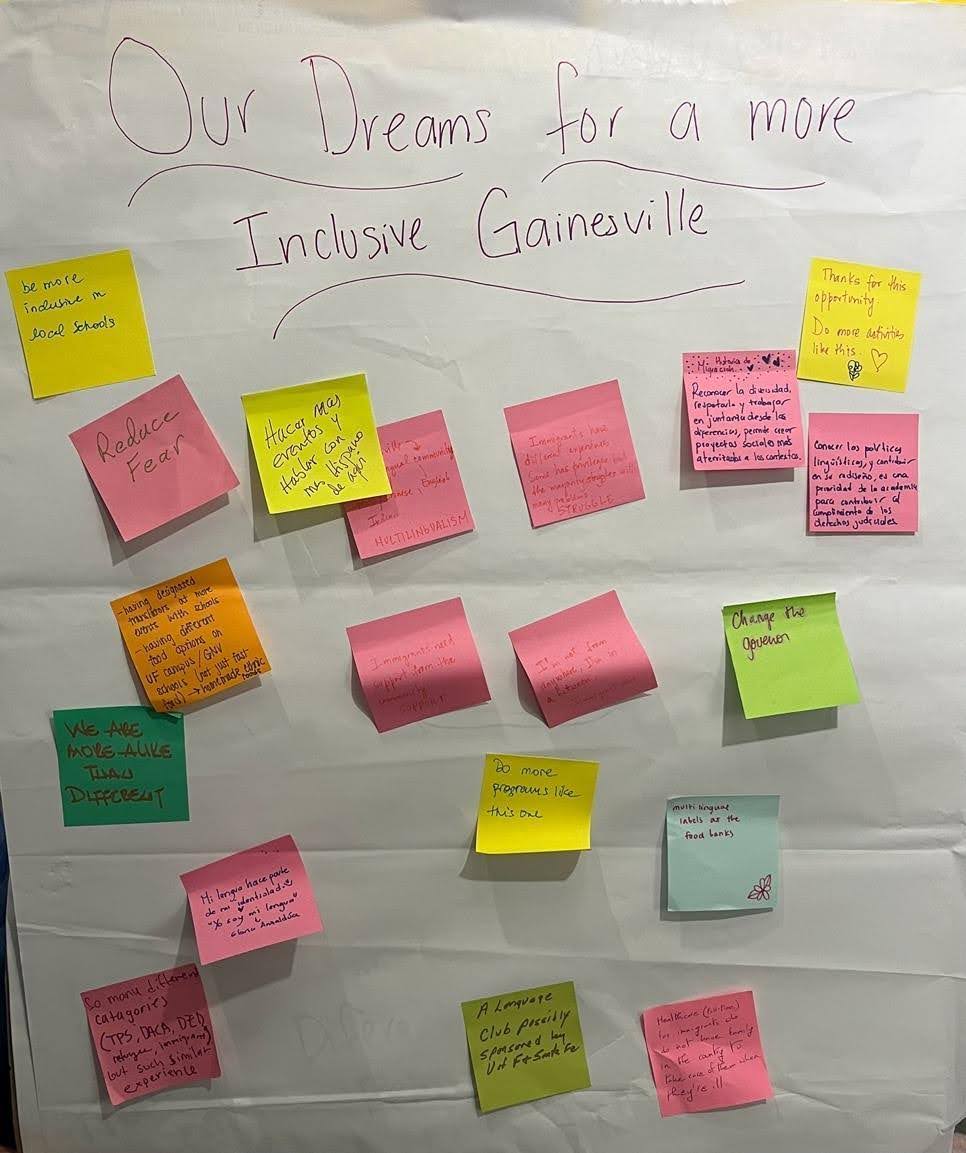 Our Dreams for a more
Inclusive Gainesville
be more
inclusive in
local schools
Thanks for this
opportunity.
Do more activities
like this.
Reduce
Fear
Hacer mas
eventos y
Hablar con
mas Hispano
de aqui
community
English
MULTILINGUALISM
Immigrants have
different experiences
Some has privileges but
the majority struggles with
many problems
STRUGGLE
Mi Historia de
Migración
Reconocer la diversidad,
respetarla y trabajar
en juntanza desde las
diferencias, permite crear
proyectos sociales más
aterrizados a los contextos.
Conocer las políticas
lingüísticas, y contribuir
en su rediseño, es una
prioridad de la academia
para contribuir al
cumplimiento de los
derechos
- having designated
translators at more
events with schools
- having different
food options on
UF campus/GNV
schools (not just fast
food) → homemade ethnic
foods
Immigrants need
support from the
community
support
I'm not from
anywhere, I'm in
between
Change the
governor
WE ARE
MORE ALIKE
THAN
DIFFERENT
Do more
programs like
this one
multilingual
labels at the
food banks
Mi lengua hace parte
de mi identidad
"Yo soy mi lengua"
Gloria Anzaldúa
So many different
catagories
(TPS, DACA, DED,
refugee, immigrant)
but such similar
experience
A Language
Club possibly
sponsored by
U of F & Santa Fe
Healthcare
for immigrants do
do not have family
in the country to
take care of them when
they're ill